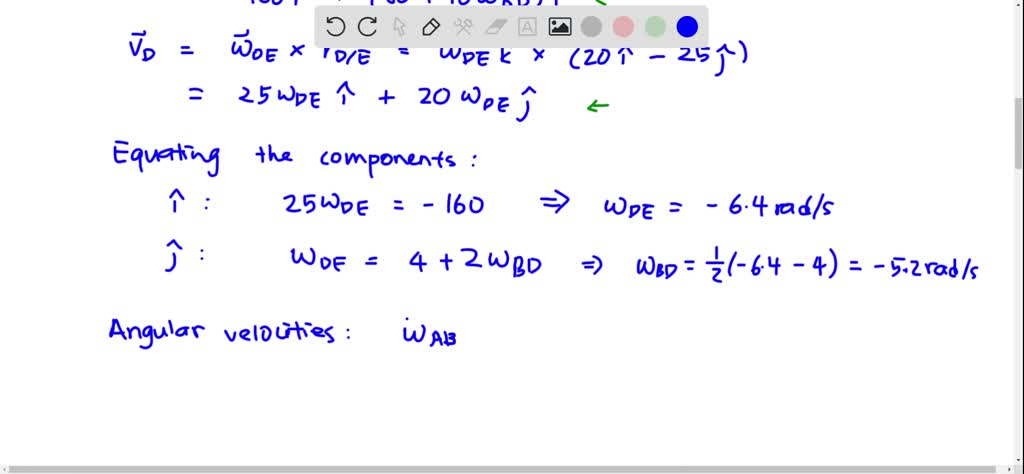 V⃗_D = ω⃗_DE × r_D/E = ω_DE k × (20 î − 25 ĵ)
= 25ω_DE î + 20 ω_DE ĵ ←
Equating the components :
î : 25ω_DE = − 160 ⇒ ω_DE = − 6.4 rad/s
ĵ : ω_DE = 4 + 2ω_BD ⇒ ω_BD = 1/2 (−6.4 − 4) = −5.2 rad/s
Angular velocities : ω_AB